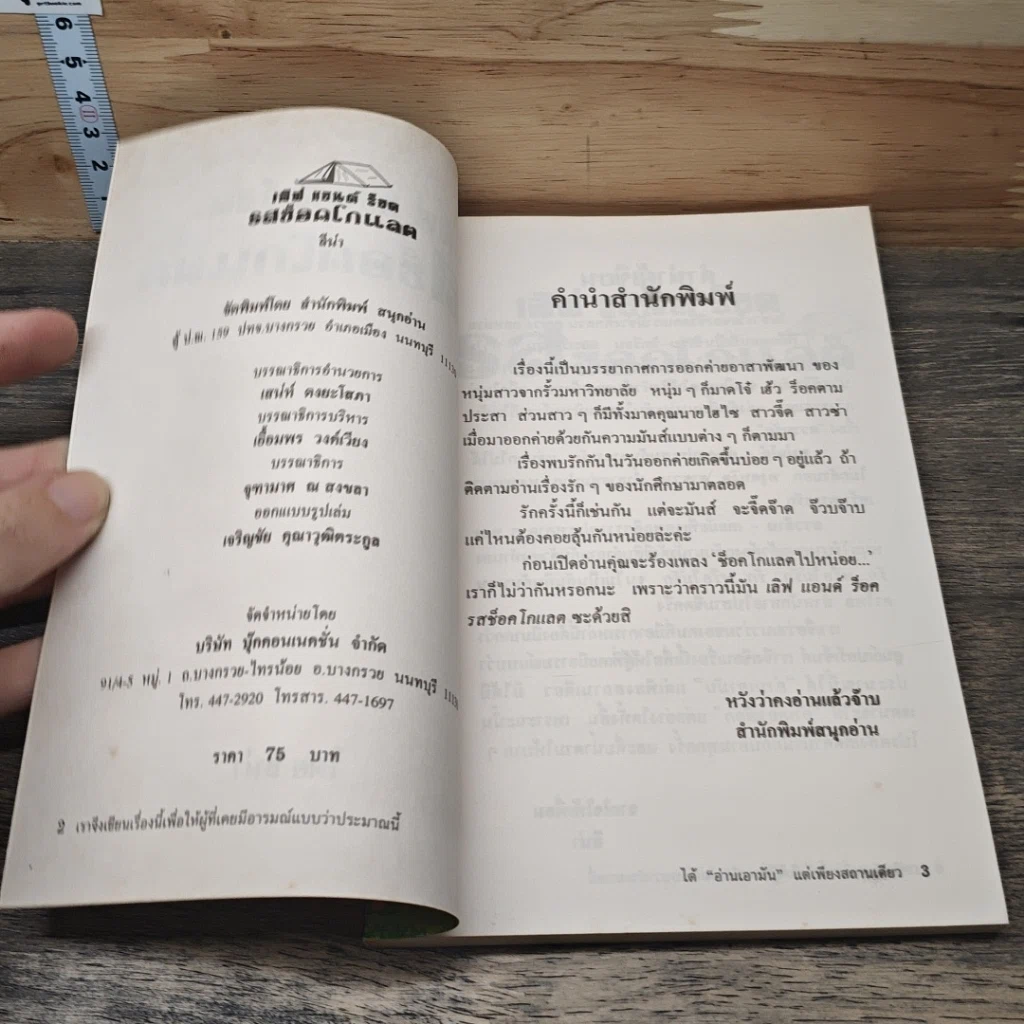 เลิฟ แอนด์ ร็อค
รสช็อคโกแลต
ธีน่า
จัดพิมพ์โดย สำนักพิมพ์ สนุกอ่าน
ตู้ ป.ณ. 159 ปทจ.บางกรวย อำเภอเมือง นนทบุรี
บรรณาธิการอำนวยการ
เสน่ห์
บรรณาธิการบริหาร
เอื้อมพร วงค์เวียง
บรรณาธิการ
จุฑามาศ ณ สงขลา
ออกแบบรูปเล่ม
เจริญชัย คุณาวุฒิตระกูล
จัดจำหน่ายโดย
บริษัท บุ๊กคอนเนคชั่น จำกัด
91/4-5 หมู่. 1 ถ.บางกรวย-ไทรน้อย อ.บางกรวย นนทบุรี
โทร. 447-2920 โทรสาร. 447-1697
ราคา 75 บาท
2 เราจึงเขียนเรื่องนี้เพื่อให้ผู้ที่เคยมีอารมณ์แบบว่าประมาณนี้
คำนำสำนักพิมพ์
เรื่องนี้เป็นบรรยากาศการออกค่ายอาสาพัฒนา ของ
หนุ่มสาวจากรั้วมหาวิทยาลัย หนุ่ม ๆ ก็มาดโจ๋ เฮ้ว ร็อคตาม
ประสา ส่วนสาว ๆ ก็มีทั้งมาดคุณนายไฮโซ สาวจี๊ด สาวซ่า
เมื่อมาออกค่ายด้วยกันความมันส์แบบต่าง ๆ ก็ตามมา
เรื่องพบรักกันในวันออกค่ายเกิดขึ้นบ่อย ๆ อยู่แล้ว ถ้า
ติดตามอ่านเรื่องรัก ๆ ของนักศึกษามาตลอด
รักครั้งนี้ก็เช่นกัน แต่จะมันส์ จะจี๊ดจ๊าด จ๊วบจ๊าบ
แค่ไหนต้องคอยลุ้นกันหน่อยล่ะค่ะ
ก่อนเปิดอ่านคุณจะร้องเพลง ‘ช็อคโกแลตไปหน่อย...’
เราก็ไม่ว่ากันหรอกนะ เพราะว่าคราวนี้มัน เลิฟ แอนด์ ร็อค
รสช็อคโกแลต ซะด้วยสิ
หวังว่าคงอ่านแล้วจ๊าบ
สำนักพิมพ์สนุกอ่าน
ได้ “อ่านเอามัน” แต่เพียงสถานเดียว 3
6
5
4
3
2